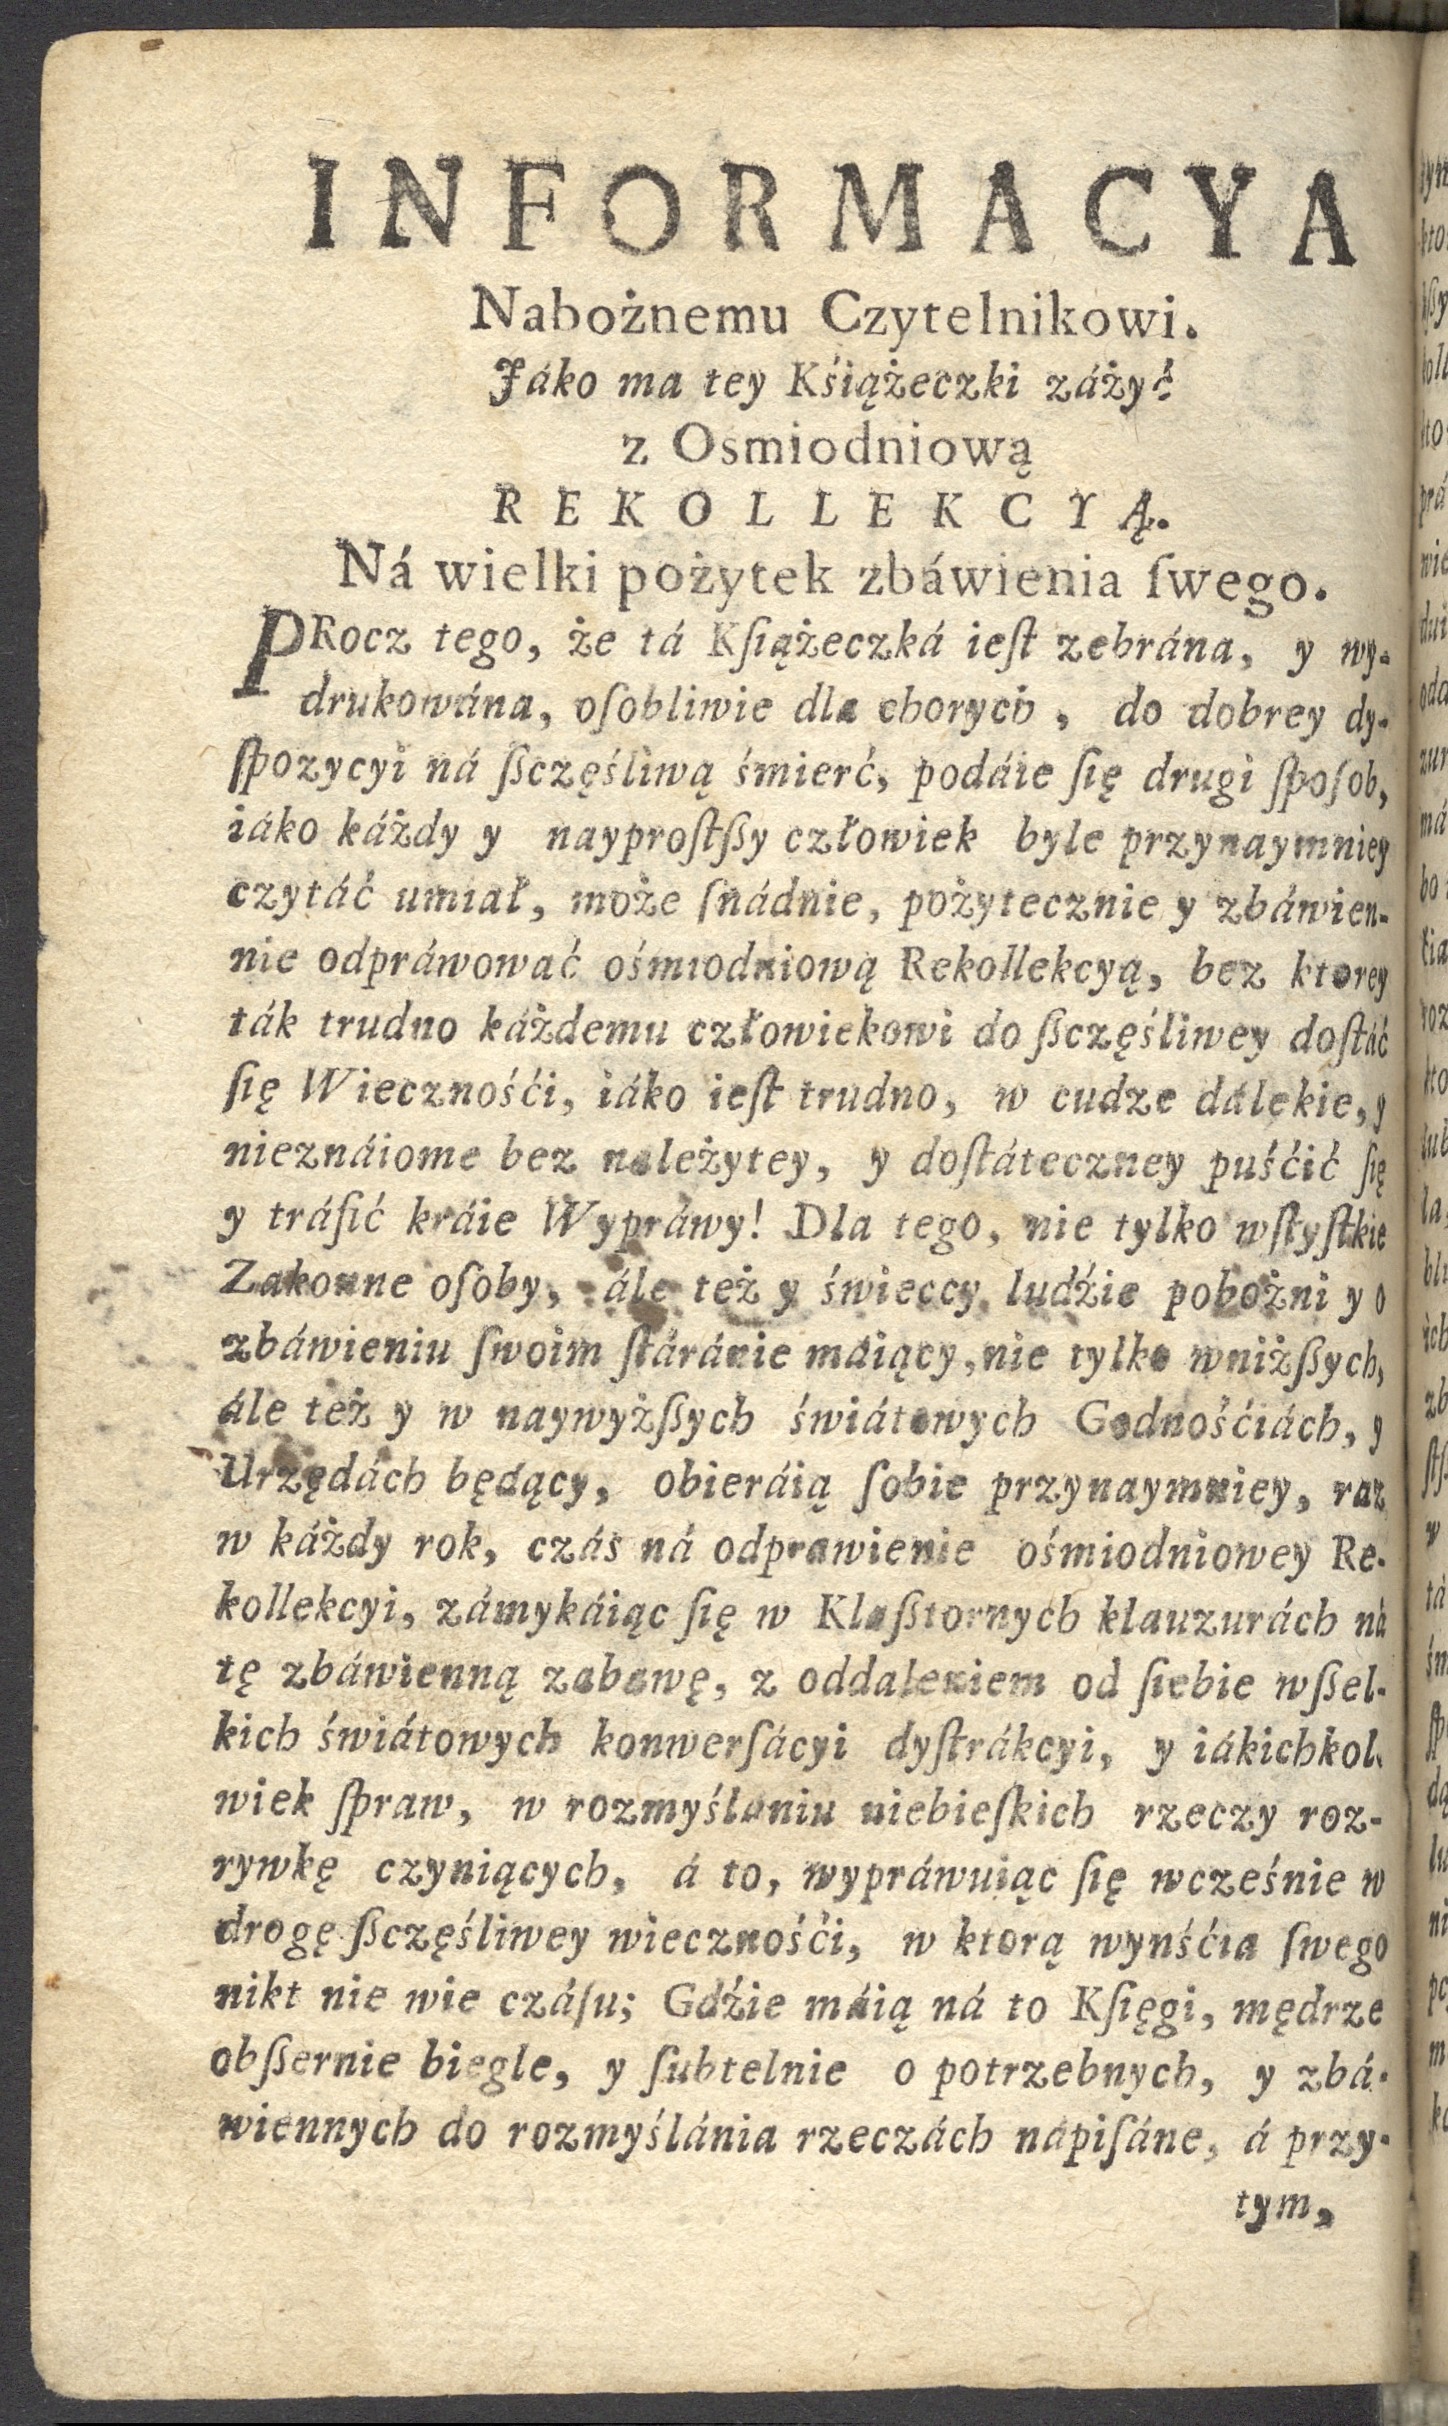 INFORMACYA
Nabożnemu Czytelnikowi.
Jáko ma tey Kśiążeczki záżyć
z Osmiodniową
REKOLLEKCYĄ.
Ná wielki pożytek zbáwienia ſwego.
PRocz tego, że tá Kſiążeczká ieſt zebrána, y wy-
drukowána, oſobliwie dla chorych, do dobrey dy-
ſpozycyi ná ſzczęśliwą śmierć, podáie ſię drugi ſpoſob,
iáko káżdy y nayproſtſzy człowiek byle przynaymniey
czytáć umiał, może ſnádnie, pożytecznie y zbáwien-
nie odpráwować ośmiodniową Rekollekcyą, bez ktorey
ták trudno káżdemu człowiekowi do ſzczęśliwey doſtáć
ſię Wiecznośći, iáko ieſt trudno, w cudze dálekie, y
nieznáiome bez należytey, y doſtáteczney puśćić ſię
y tráfić kráie Wypráwy! Dla tego, nie tylko wſtyſtkie
Zakonne oſoby, ále też y świeccy ludźie pobożni y o
zbáwieniu ſwoim ſtáránie máiący, nie tylko wniżſzych,
ále też y w naywyżſzych świátowych Godnośćiách, y
Urzędách będący, obieráią ſobie przynaymniey, raz
w káżdy rok, czás ná odprawienie ośmiodniowey Re-
kollekcyi, zámykáiąc ſię w Klaſztornych klauzurách ná
tę zbáwienną zabawę, z oddaleniem od ſiebie wſzel-
kich świátowych konwerſácyi dyſtrákcyi, y iákichkol-
wiek ſpraw, w rozmyślaniu niebieſkich rzeczy roz-
rywkę czyniących, á to, wypráwuiąc ſię wcześnie w
drogę ſzczęśliwey wiecznośći, w ktorą wynśćia ſwego
nikt nie wie czáſu; Gdźie máią ná to Kſięgi, mędrze
obſzernie biegle, y ſubtelnie o potrzebnych, y zbá-
wiennych do rozmyślánia rzeczách nápiſáne, á przy-
tym,